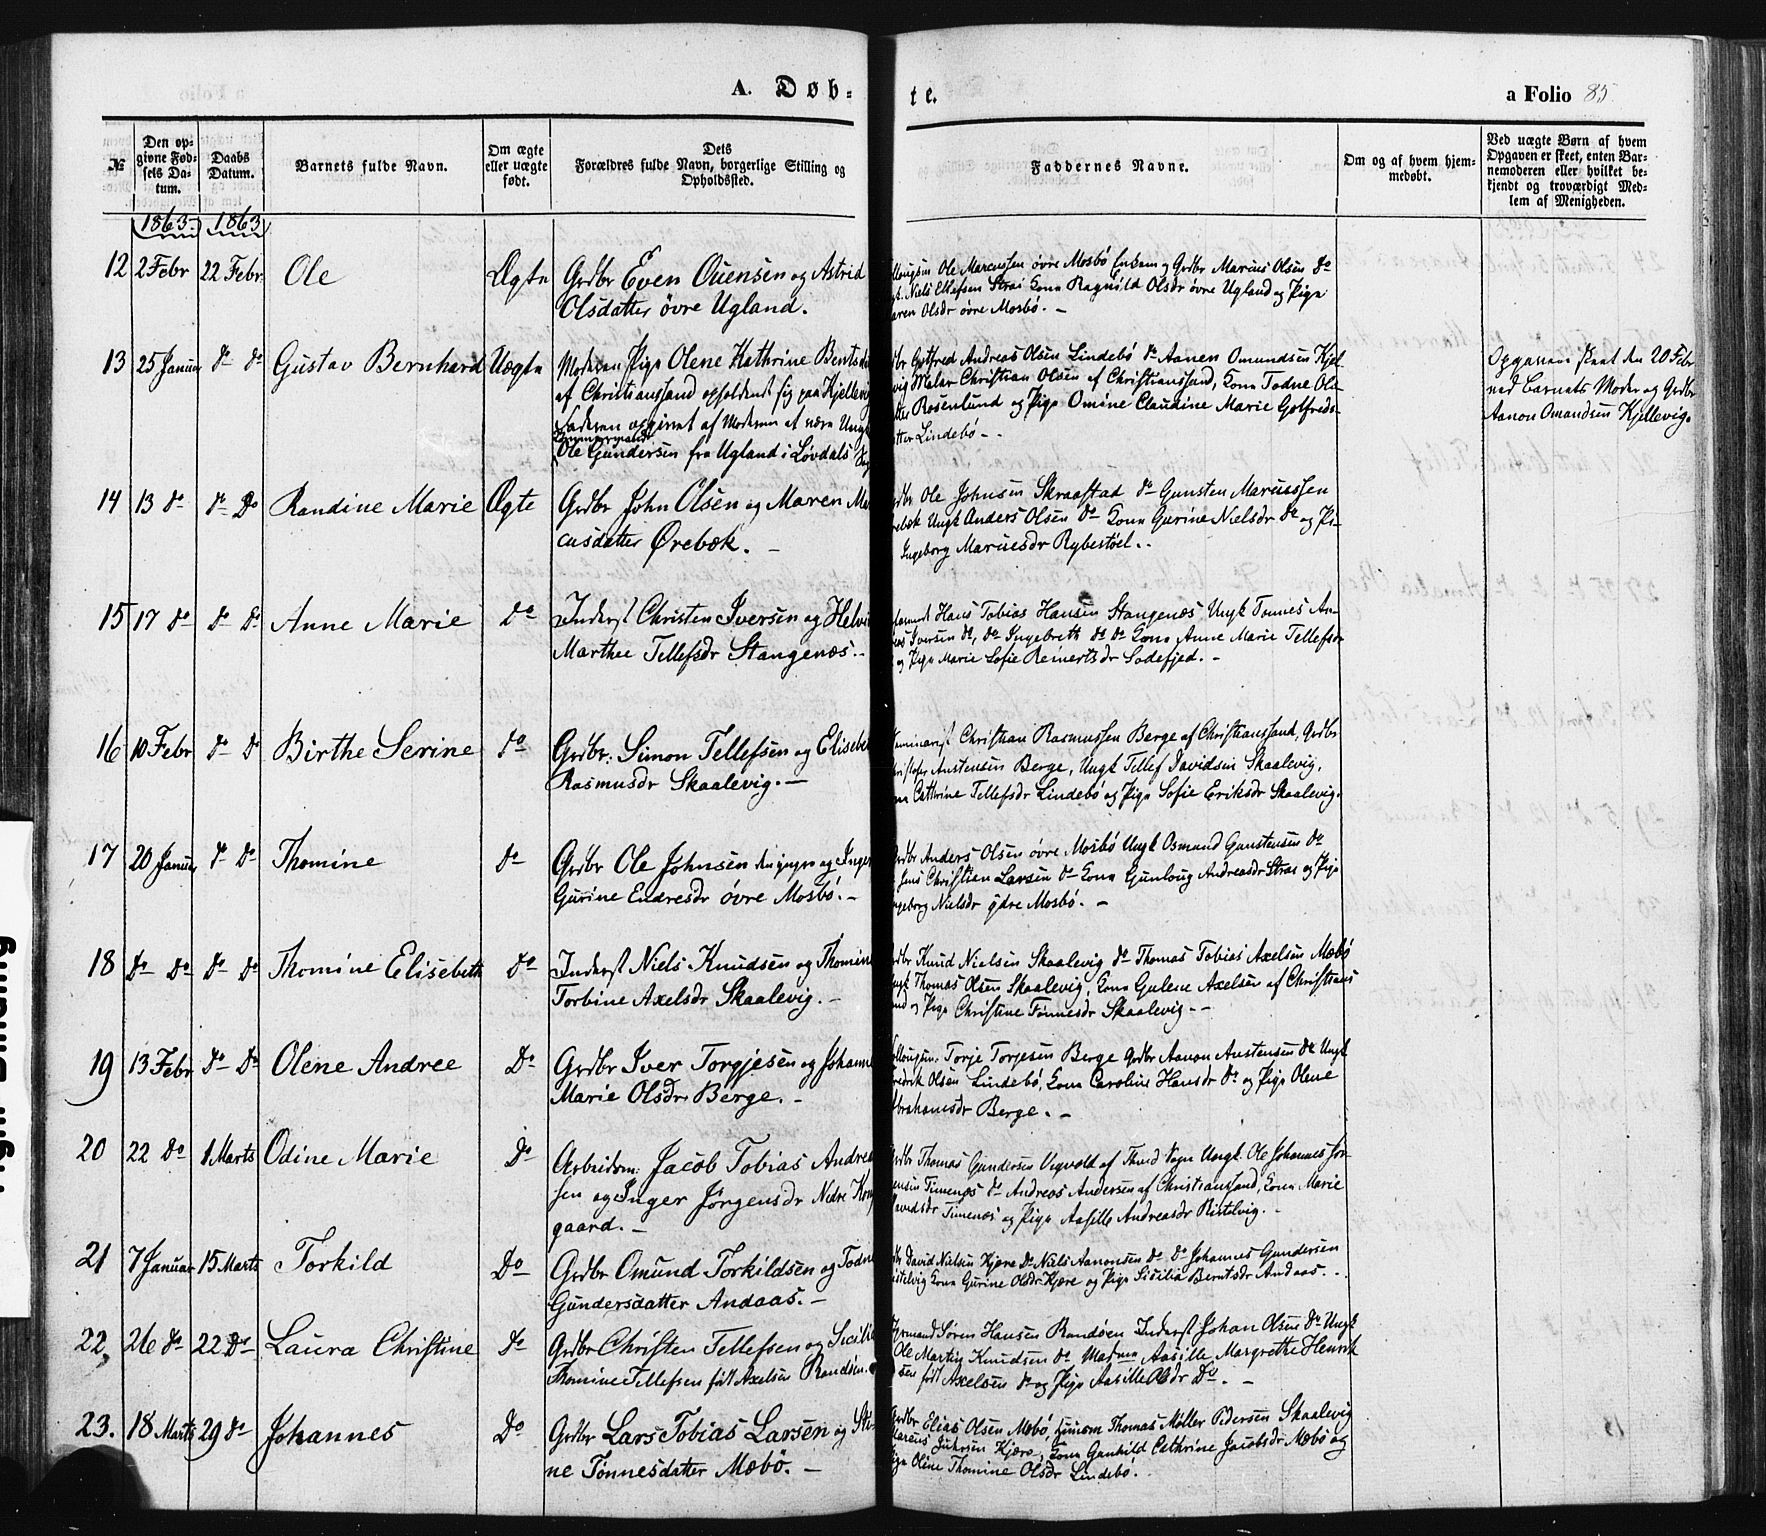 A. Døb-
te.
a Folio 85.
№
Den op-
givne Fød-
sels Da-
tum.
Daabs
Datum.
Barnets fulde Navn.
Om ægte
eller uægte
født.
Dets
Forældres fulde Navn, borgerlige Stilling og
Opholdssted.
Faddernes Navne.
Om og af hvem hjem-
medøbt.
Ved uægte Børn af hvem
Opgaven er skeet, enten Bar-
nemoderen eller hvilket be-
kjendt og troværdigt Med-
lem af Menigheden.
1863. 1863
12 2 Febr 22 Febr. Ole Ægte Grdbr Even Ouensen og Astrid
Olsdatter övre Ugland.
Ole Marcussen övre Mosbö Enkem og Grdbr Marius Olsen do
Niels Ellefsen Strai Kone Ragnild Olsdr övre Ugland og Pige
Maren Olsdr övre Mosbö. -
13 25 Januar do do Gustav Bernhard Uægte Moderen Pige Olene Kathrine Bentsdr
af Christianssand opholdent sig paa Kjellevig
Faderen opgivet af Moderen at være Ungk
Tømmermand
Ole Gundersen fra Ugland i Løvdals Sogn
Grdbr Gotfred Andreas Olsen Lindebö do Aanen Omundsen Kjel-
vig Maler Christian Olsen af Christianssand, Kone Todne Ols-
datter Rosenlund og Pige Omine Claudine Marie Gotfreds-
datter Lindebö -
Opgaven skeet den 20 Febr
ved Barnets Moder og Grdbr
Aanon Omundsen Kjellevig.
14 13 do do Do Randine Marie Ægte Grdbr John Olsen og Maren Mar-
cusdatter Ørebæk. -
Grdbr Ole Johnsen Skraastad do Gunsten Marcussen
Ørebæk Ungk Anders Olsen do Kone Gurine Nielsdr do og Pi-
Ingeborg Marcusdr Rybestöel.
15 17 do do do Anne Marie Do Inderst Christen Iversen og Helvi
Marthee Tellefsdr Stangenæs. -
Hans Tobias Hansen Stangenæs Ungk Tönnes An-
dreas Iversen do, do Ingebreth do do Kone Anne Marie Tellefsdr
og Pige Marie Sofie Reinertsdr Sodefjed. -
16 10 Febr do do Birthe Serine do Grdbr: Simon Tellefsen og Elisebet
Rasmusdr Skaalevig. -
Seminarist Christian Rasmussen Berge af Christianssand, Grdbr
Christofer Austensen Berge, Ungk Tellef Davidsen Skaalevig,
Kone Cathrine Tellefsdr Lindebö og Pige Sofie Eriksdr Skaalevig.
17 20 Januar do Do Thomine Do Grdbr Ole Johnsen den yngre og Inger
Gurine Endresdr övre Mosbö. -
Grdbr Anders Olsen övre Mosbö Ungk Osmund Gunstensen do
Jens Christian Larsen do Kone Gunloug Andreasdr Strai og Pige
Ingeborg Nielsdr ydre Mosbö. -
18 Do Do Do Do Thomine Elisebeth Do Inderst Niels Knudsen og Thomine
Torbine Axelsdr Skaalevig. -
Grdbr Knud Nielsen Skaalevig do Thomas Tobias Axelsen Mæbö
Ungk Thomas Olsen Skaalevig, Kone Gulene Axelsen af Christians
sand og Pige Christine Tönnesdr Skaalevig. -
19 13 Febr Do Do Olene Andree Do Grdbr Iver Torgjesen og Johanne
Marie Olsdr Berge. -
Torje Torjesen Berge Grdbr Aanon Austensen do Ungk
Fredrik Olsen Lindebö, Kone Caroline Hansdr do og Pige Olene
Abrahamsdr Berge. -
20 22 Do 1 Marts Odine Marie Do Arbeidsm: Jacob Tobias Andrea
sen og Inger Jörgensdr Nedre Kon
gaard. -
Grdbr Thomas Gundersen Vigvold af Thvid Sogn Ungk. Ole Johannes Jör-
gensen Timenæs do Andreas Andersen af Christianssand, Kone Marie
Davidsdr Timenæs og Pige Aasille Andreasdr Ristelvig. -
21 7 Januar 15 Marts Torkild Do Grdbr Omund Torkildsen og Todne
Gundersdatter Andaas. -
David Nielsen Kjære Do Niels Aanonsen Do, Do Johannes Gundersen
Ristelvig Kone Gurine Olsdr Kjære og Pige Sicilia Berntsdr Andaas. -
22. 26 do 22 Do Laura Christine Do Grdbr Christen Tellefsen og Sicilie
Thomine Tellefsen født Axelsen Randöen.
Søren Hansen Randöen Inderst Johan Olsen Do Ungk
Ole Martin Knudsen do Madme Aasille Margrethe Henrik
sen født Axelsen do og Pige Aasille Olsdr Do. -
23. 18 Marts 29 do Johannes Do Grdbr Lars Tobias Larsen og Sti-
ne Tönnesdatter Mæbö. -
Grdbr Elias Olsen Mæbö, Thomas Møller Pedersen Skaalevig
Marcus Kjære, Kone Gunhild Cathrine Jacobsdr Mæbö og
Pige Oline Thomine Olsdr Lindebö.